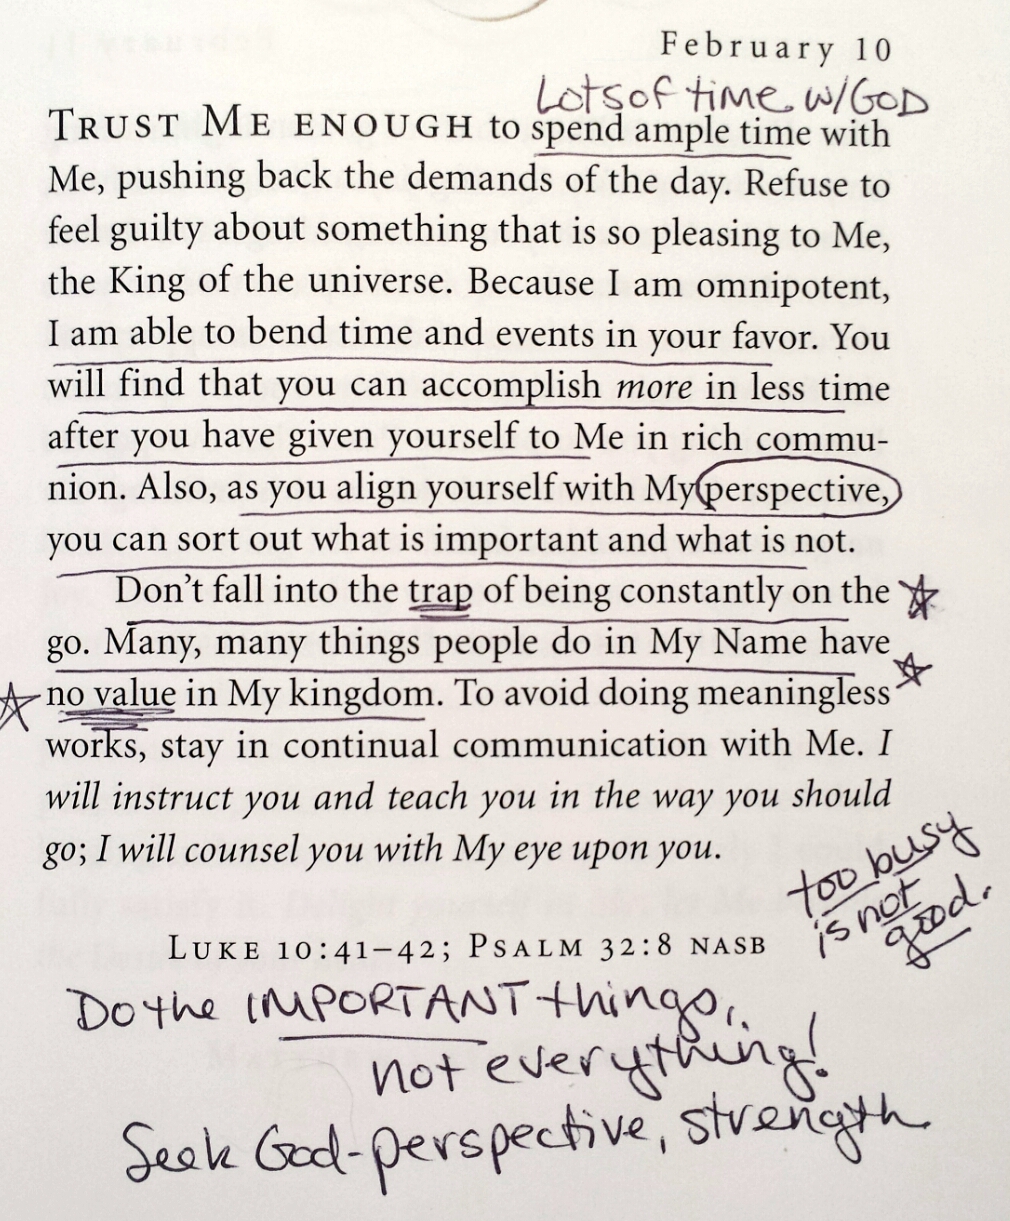 February 10
Lots of time w/GOD
TRUST ME ENOUGH to spend ample time with
Me, pushing back the demands of the day. Refuse to
feel guilty about something that is so pleasing to Me,
the King of the universe. Because I am omnipotent,
I am able to bend time and events in your favor. You
will find that you can accomplish more in less time
after you have given yourself to Me in rich commu-
nion. Also, as you align yourself with My perspective,
you can sort out what is important and what is not.
Don't fall into the trap of being constantly on the
go. Many, many things people do in My Name have
no value in My kingdom. To avoid doing meaningless
works, stay in continual communication with Me. I
will instruct you and teach you in the way you should
go; I will counsel you with My eye upon you.
too busy
is not
good.
LUKE 10:41–42; PSALM 32:8 NASB
Do the IMPORTANT things,
not everything!
Seek God-perspective, strength